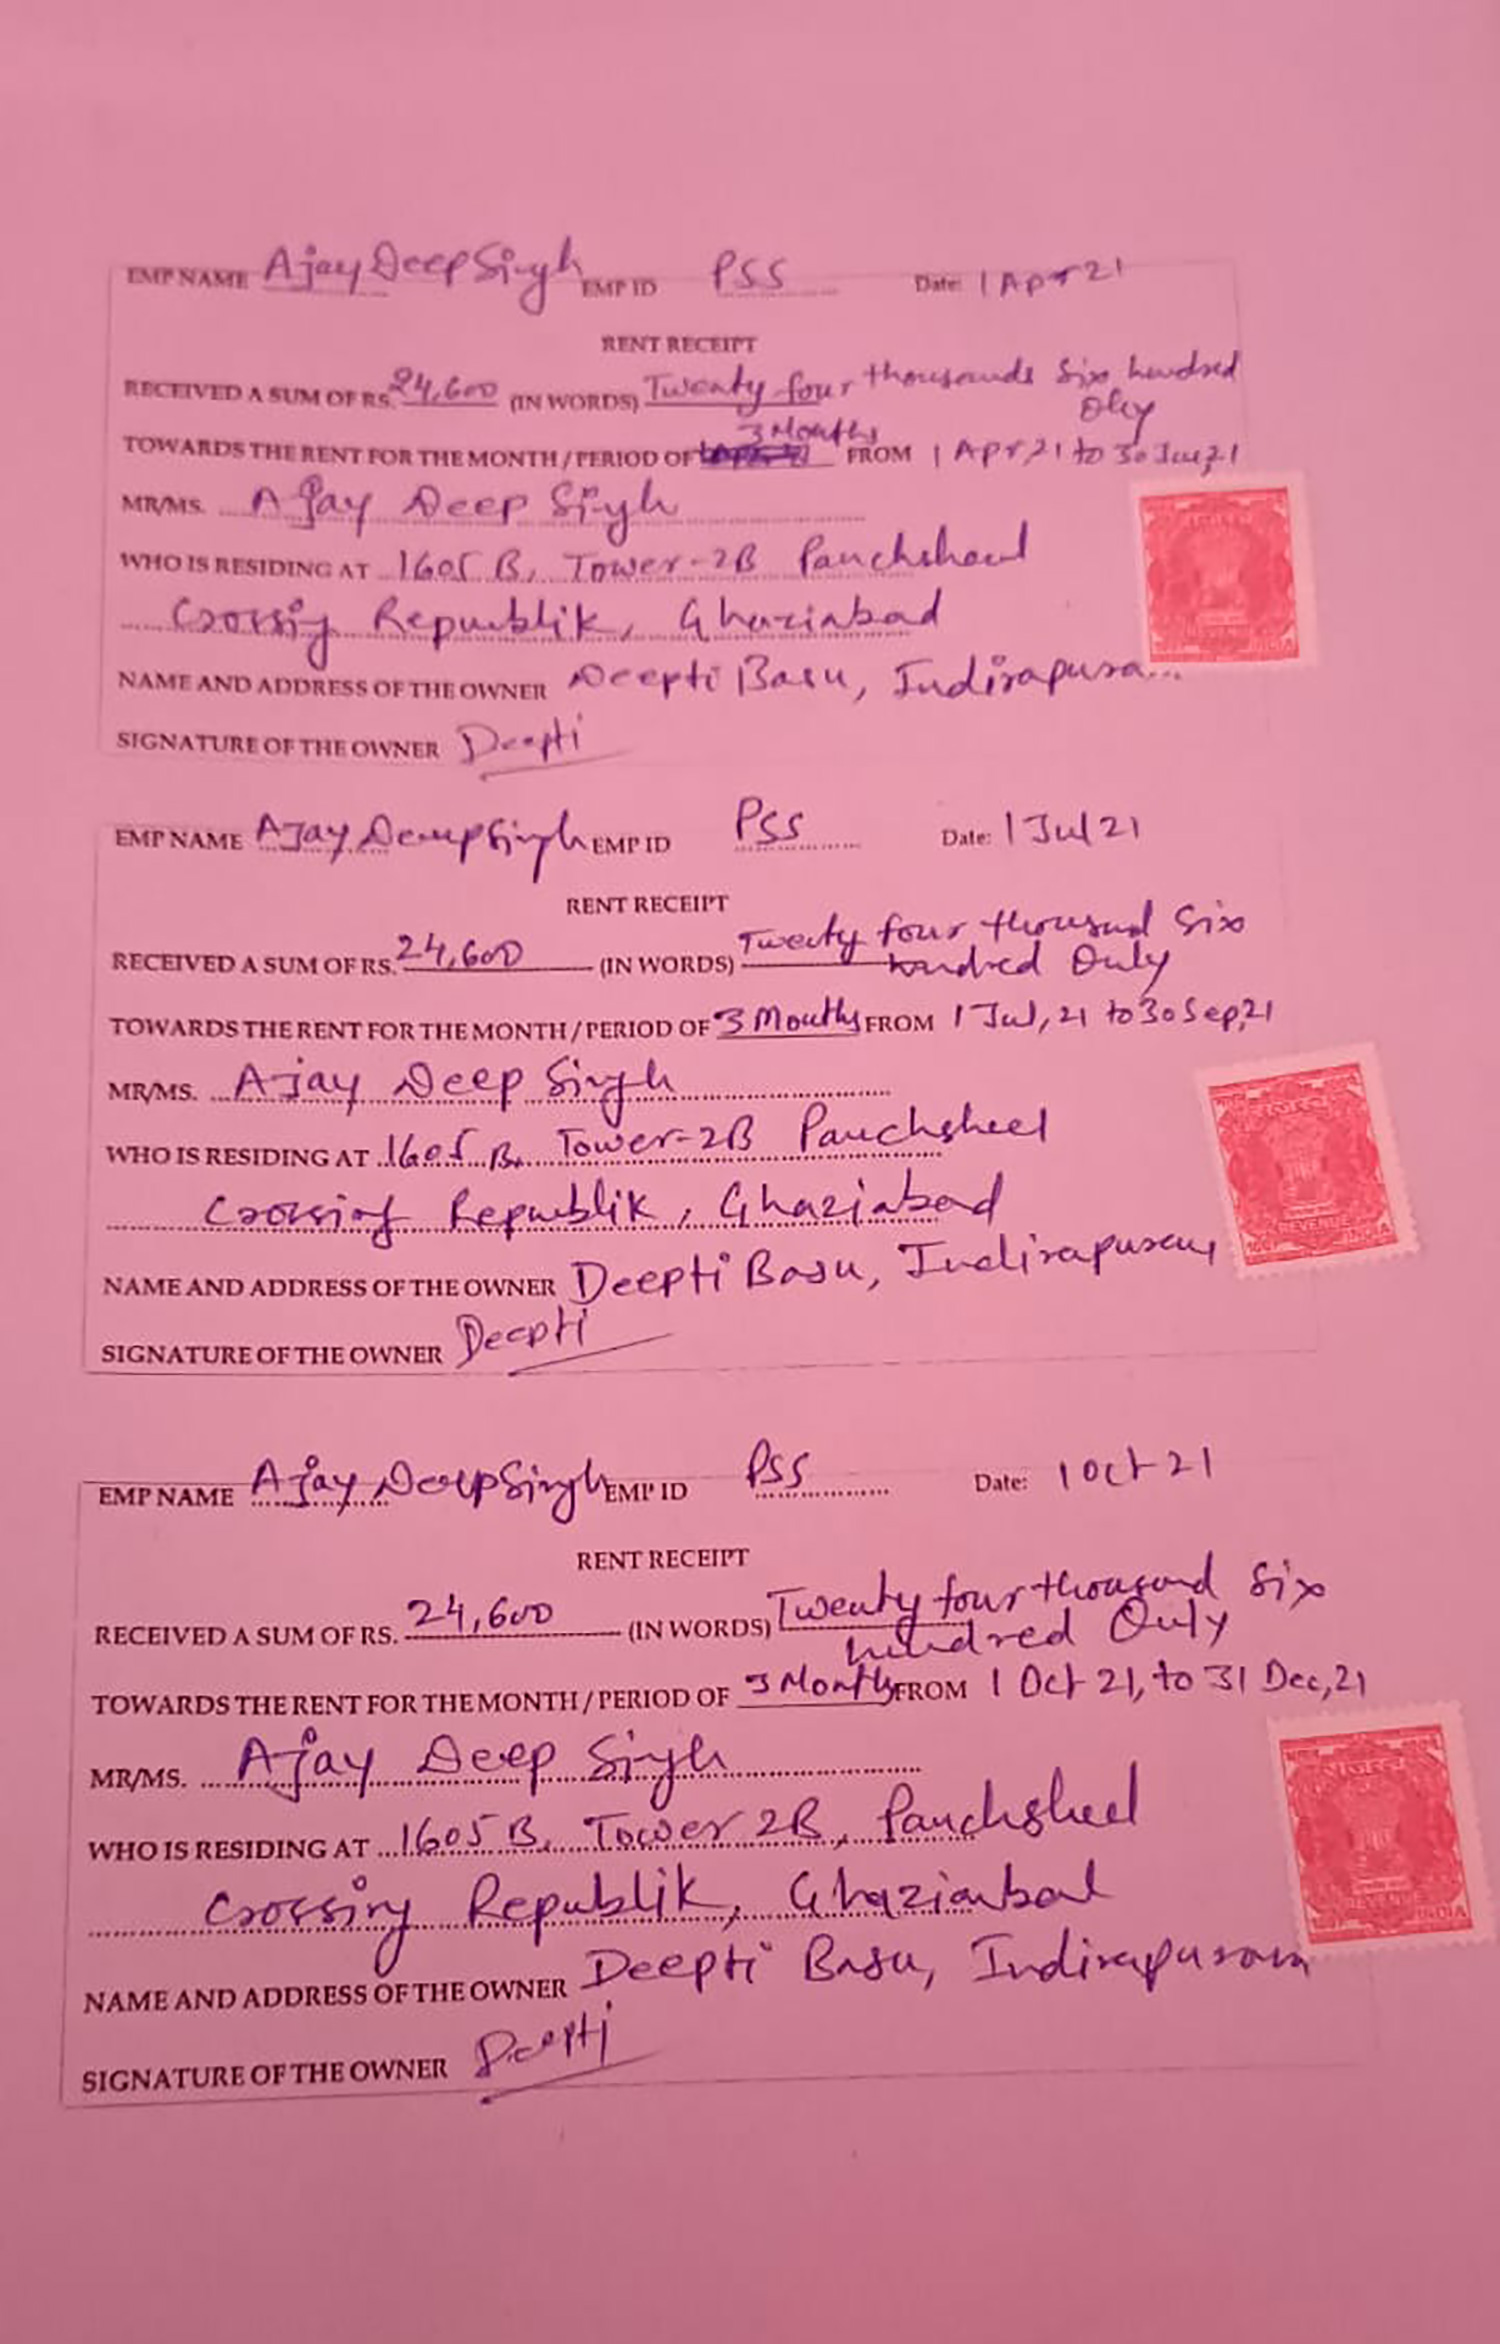 EMP NAME Ajay Deep Singh EMP ID PSS Date: 1 Apr 21
RENT RECEIPT
RECEIVED A SUM OF RS. 24,600 (IN WORDS) Twenty four thousands Six hundred
Only
3 Months
TOWARDS THE RENT FOR THE MONTH / PERIOD OF FROM 1 Apr, 21 to 30 Jun, 21
MR/MS. Ajay Deep Singh
WHO IS RESIDING AT 1605 B, Tower-2B Panchsheel
Crossing Republik, Ghaziabad
NAME AND ADDRESS OF THE OWNER Deepti Basu, Indirapura
SIGNATURE OF THE OWNER Deepti
EMP NAME Ajay Deep Singh EMP ID PSS Date: 1 Jul 21
RENT RECEIPT
RECEIVED A SUM OF RS. 24,600 (IN WORDS) Twenty four thousand Six
hundred Only
TOWARDS THE RENT FOR THE MONTH / PERIOD OF 3 Months FROM 1 Jul, 21 to 30 Sep, 21
MR/MS. Ajay Deep Singh
WHO IS RESIDING AT 1605 B, Tower-2B Panchsheel
REVENUE
INDIA
Crossing Republik, Ghaziabad
NAME AND ADDRESS OF THE OWNER Deepti Basu, Indirapuram
SIGNATURE OF THE OWNER Deepti
EMP NAME Ajay Deep Singh EMP ID PSS Date: 1 Oct 21
RENT RECEIPT
RECEIVED A SUM OF RS. 24,600 (IN WORDS) Twenty four thousand Six
hundred Only
TOWARDS THE RENT FOR THE MONTH / PERIOD OF 3 Months FROM 1 Oct 21, to 31 Dec, 21
MR/MS. Ajay Deep Singh
WHO IS RESIDING AT 1605 B, Tower 2B, Panchsheel
Crossing Republik, Ghaziabad
INDIA
NAME AND ADDRESS OF THE OWNER Deepti Basu, Indirapuram
SIGNATURE OF THE OWNER Deepti